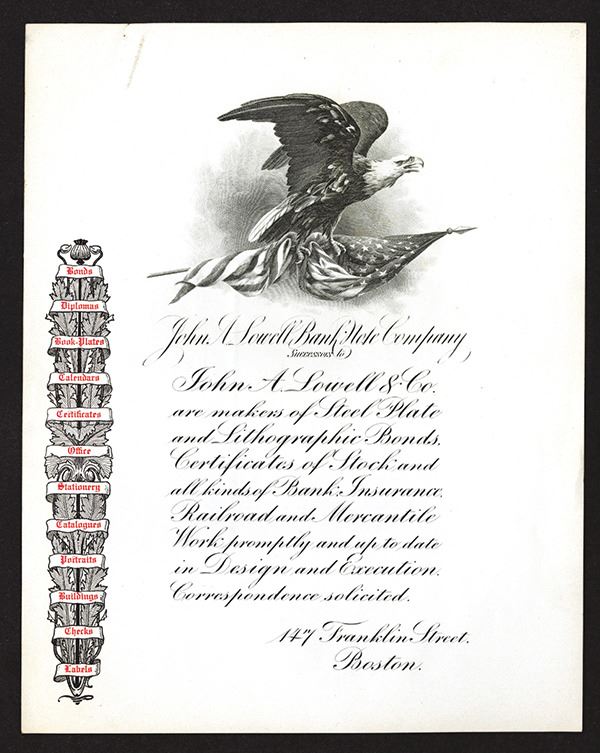 Bonds
Diplomas
Book-Plates
Calendars
Certificates
Office
Stationery
Catalogues
Portraits
Buildings
Checks
Labels
John A. Lowell Bank Note Company
Successor to
John A. Lowell & Co.
are makers of Steel Plate
and Lithographic Bonds,
Certificates of Stock and
all kinds of Bank, Insurance,
Railroad and Mercantile
Work promptly and up to date
in Design and Execution.
Correspondence solicited.
147 Franklin Street.
Boston.